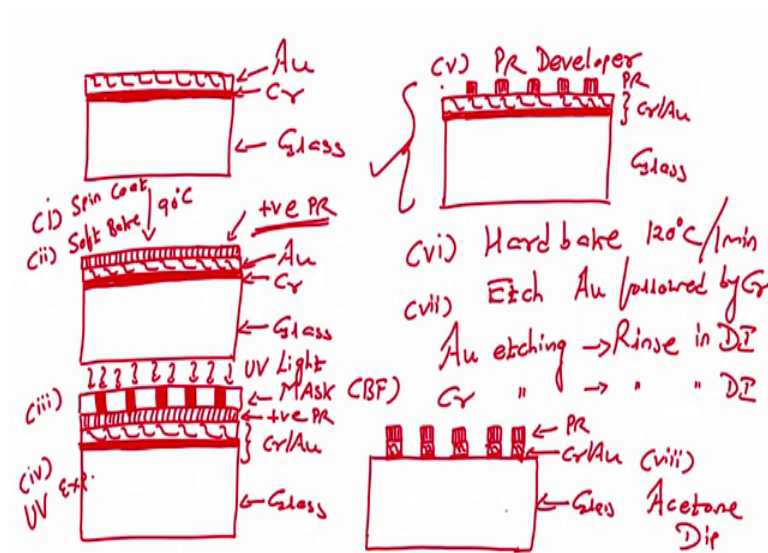 Au
Cr
Glass
(i) Spin Coat
(ii) Soft Bake 90°C
+ve PR
Au
Cr
Glass
UV Light
(iii)
MASK (BF)
+ve PR
Cr/Au
(iv)
UV Exp.
Glass
(v) PR Developer
PR
Cr/Au
Glass
(vi) Hard bake 120°C/1min
(vii) Etch Au followed by Cr
Au etching → Rinse in DI
Cr " → " " DI
PR
Cr/Au
(viii)
Glass
Acetone
Dip